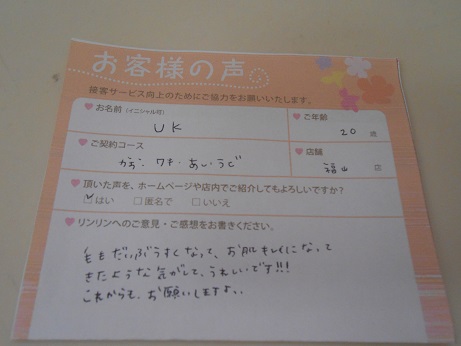 お客様の声
接客サービス向上のためにご協力をお願いいたします。
お名前(イニシャル可)
UK
ご年齢
20 歳
ご契約コース
かお・ワキ・あし・うで
店舗
福山 店
頂いた声を、ホームページや店内でご紹介してもよろしいですか?
はい 匿名で いいえ
リンリンへのご意見・ご感想をお書きください。
毛もだいぶうすくなって、お肌もキレイになって
きたような気がして、うれしいです!!!
これからも、お願いしますよ。